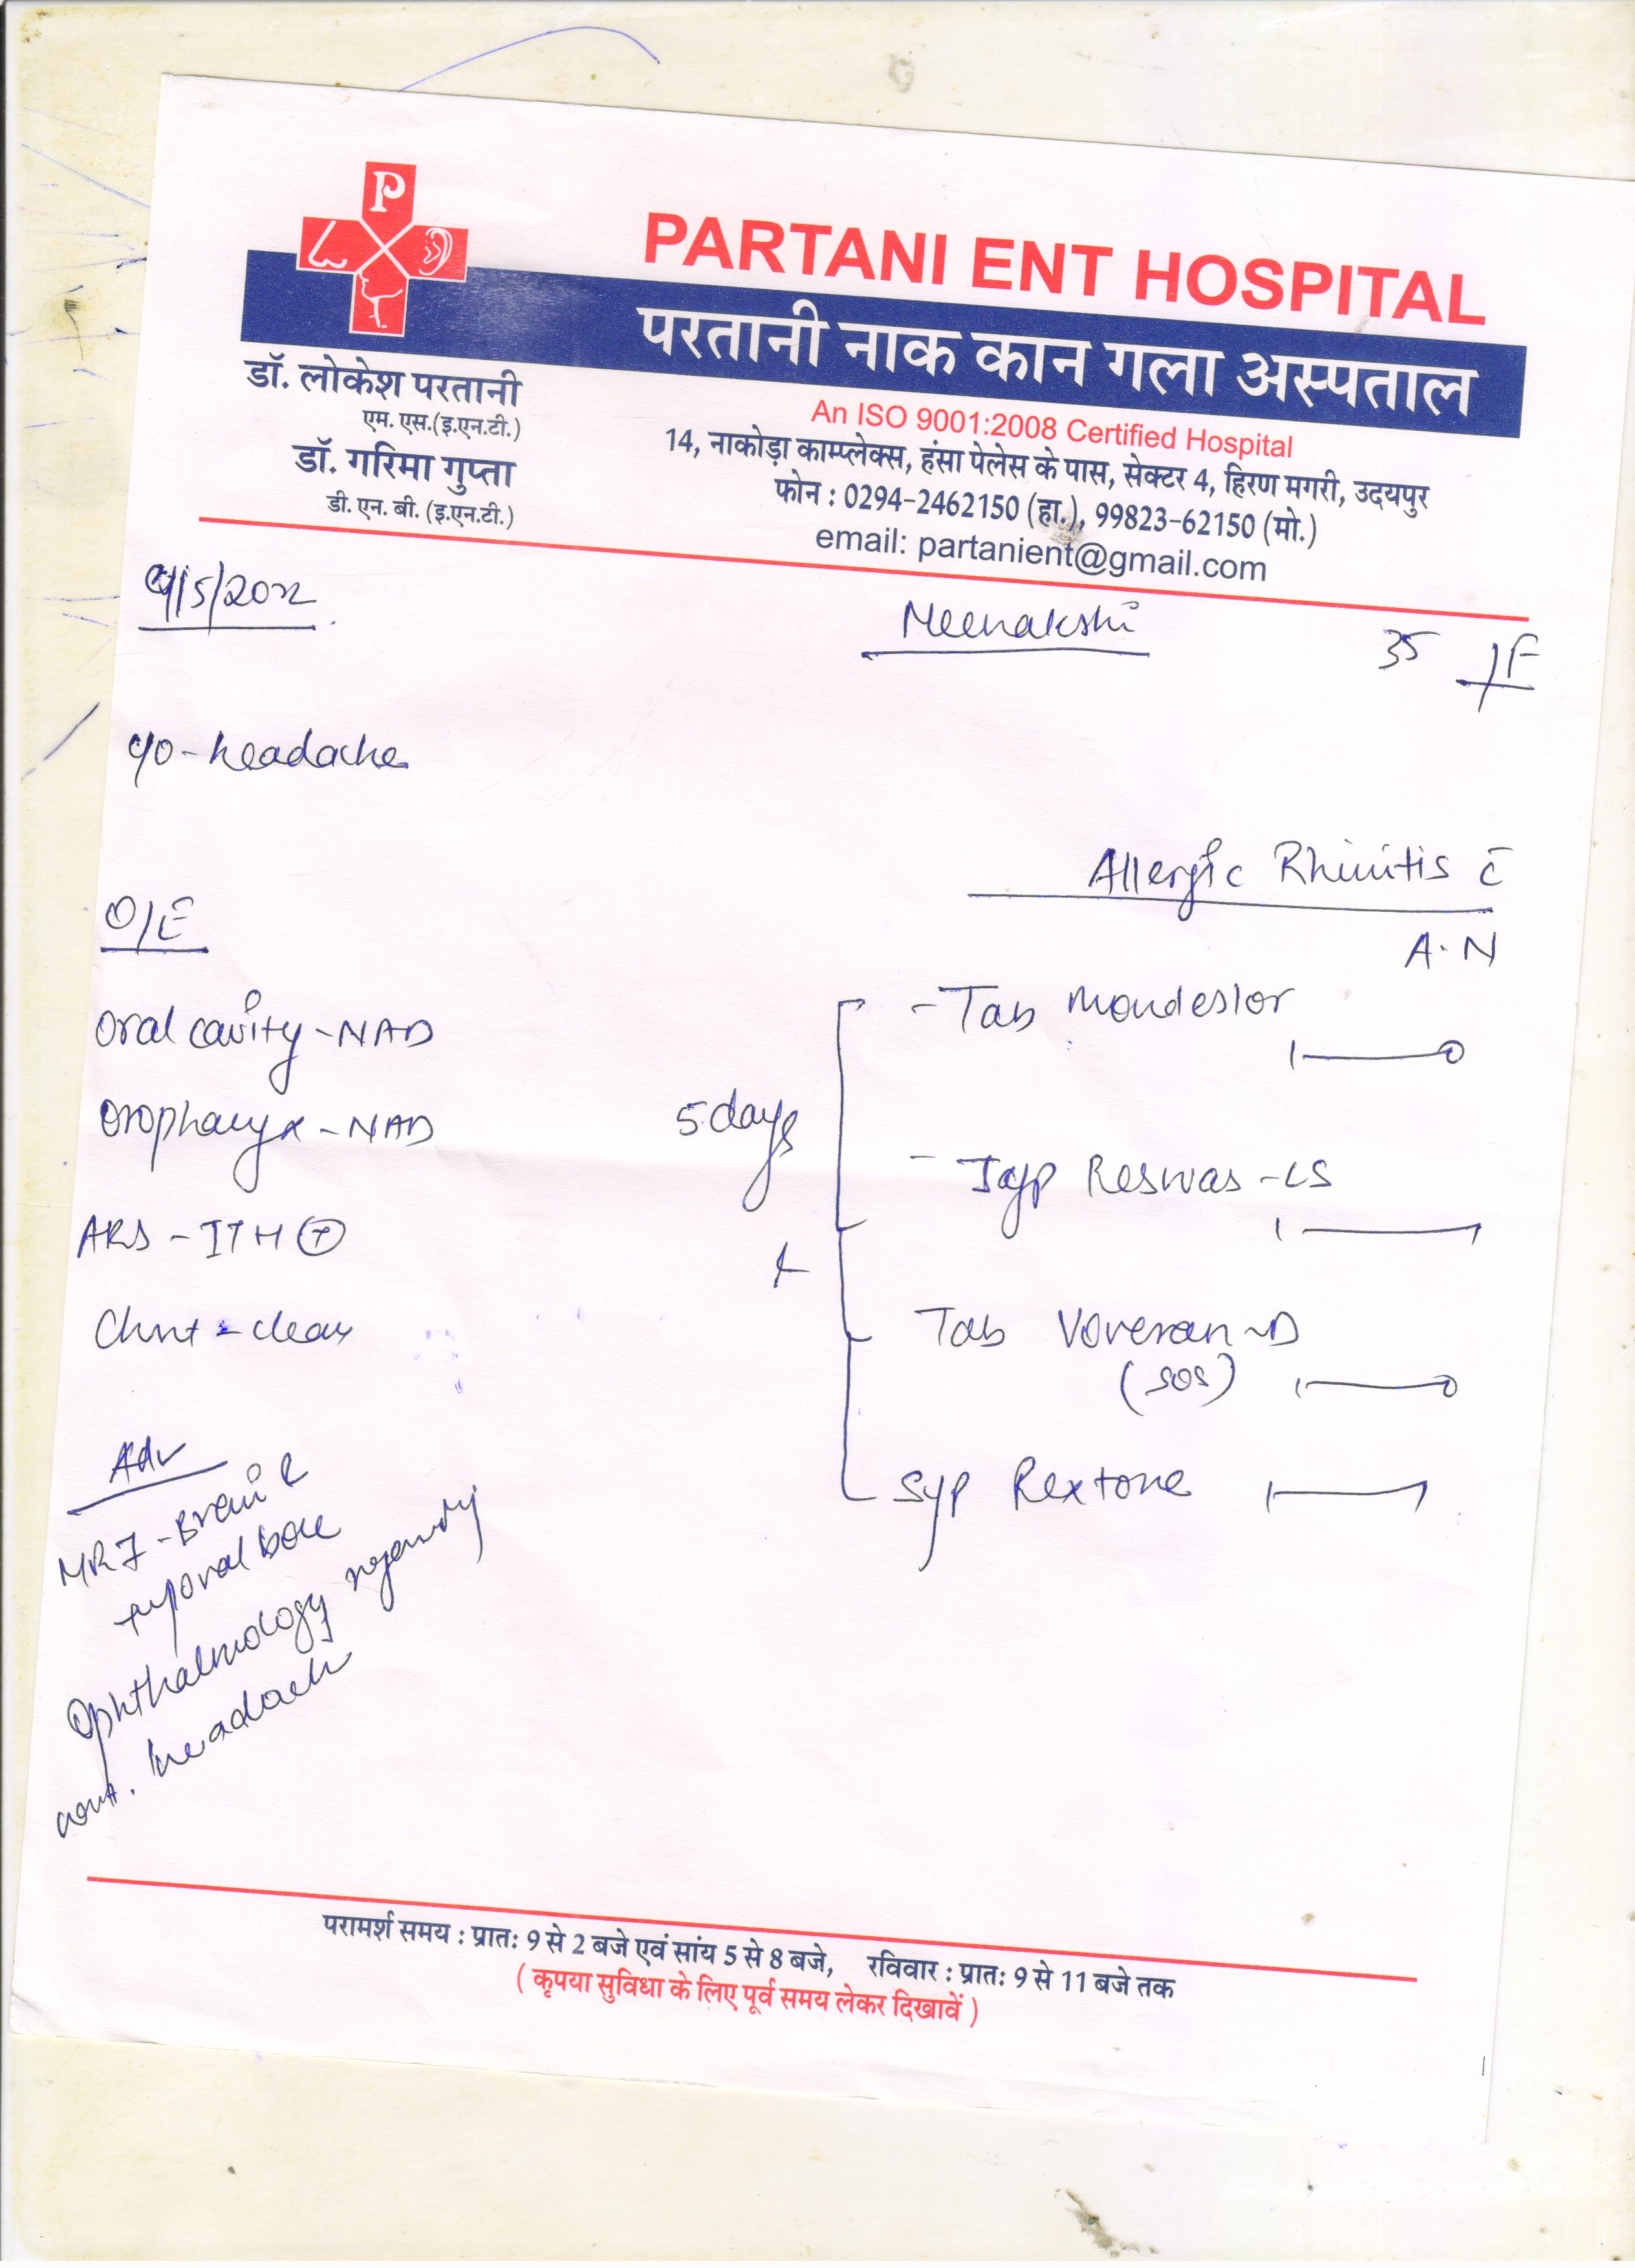 P
PARTANI ENT HOSPITAL
परतानी नाक कान गला अस्पताल
डॉ. लोकेश परतानी
एम. एस.(इ.एन.टी.)
डॉ. गरिमा गुप्ता
डी. एन. बी. (इ.एन.टी.)
An ISO 9001:2008 Certified Hospital
14, नाकोड़ा काम्पलेक्स, हंसा पेलेस के पास, सेक्टर 4, हिरण मगरी, उदयपुर
फोन : 0294-2462150 (हा.), 99823-62150 (मो.)
email: partanient@gmail.com
/5/2022
Meenakshi
35 /F
c/o - headache
Allergic Rhinitis c̄
A.N
O/E
Oral cavity - NAD
Oropharyx - NAD
ARS - ITH +
Chest - clear
5 days
- Tab Mondeslor
1 — 0
- Syp Reswas - LS
1 — 1
Tab Voveran - D
(SOS) 1 — 0
Syp Rextone 1 — 1
Adv
MRI - Brain &
temporal bone
Ophthalmology
headach
परामर्श समय : प्रातः 9 से 2 बजे एवं सांय 5 से 8 बजे, रविवार : प्रातः 9 से 11 बजे तक
( कृपया सुविधा के लिए पूर्व समय लेकर दिखावें )